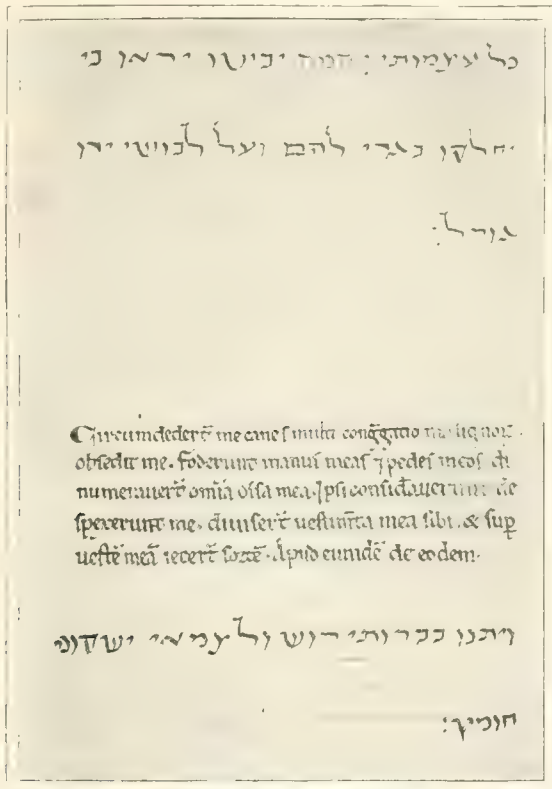 כל עצמותי : המה יביטו יראו בי
יחלקו בגדי להם ועל לבושי ירו
גורל:
Circumdeder̄t me canes multi cong̃gatio maligno℞.
obsedit me. foderunt manus meas ⁊ pedes meos di
numerauer̄t om̄ia ossa mea. Ipsi consid̄auerunt ⁊ c̄
spexerunt me. diuiser̄t uestim̄ta mea sibi. & sup̱
uestē meā iecer̄t sortē. Apud eundē de eodem.
ויתנו בברותי רוש ולצמאי ישקוני
חומץ: